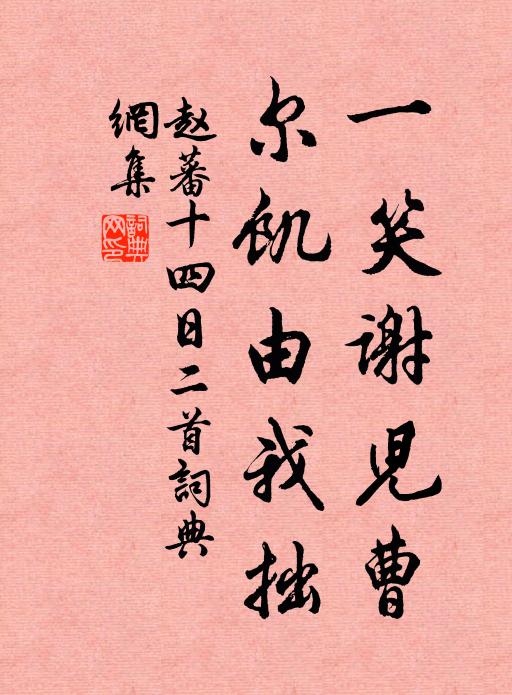 一笑谢児曹
尔飢由我拙
赵蕃十四日二首詞典
網集
詞典
网印